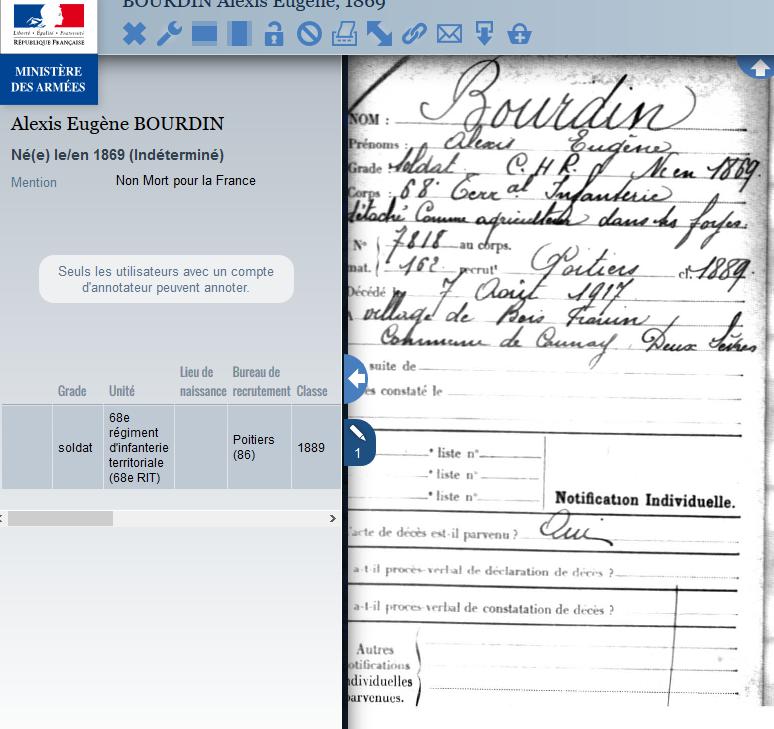 BOURDIN Alexis Eugène, 1869
Liberté • Égalité • Fraternité
RÉPUBLIQUE FRANÇAISE
MINISTÈRE
DES ARMÉES
Alexis Eugène BOURDIN
Né(e) le/en 1869 (Indéterminé)
Mention Non Mort pour la France
Seuls les utilisateurs avec un compte
d'annotateur peuvent annoter.
Grade Unité Lieu de naissance Bureau de recrutement Classe
soldat 68e régiment d'infanterie territoriale (68e RIT) Poitiers (86) 1889
1
NOM : Bourdin
Prénoms : Alexis Eugène
Grade : soldat C.H.R. Né en 1869.
Corps : 68e Terral Infanterie
détaché comme agriculteur dans ses foyers
N° 7818 au corps.
mat. 162 recrutt Poitiers cl. 1889.
Décédé le 7 Août 1917
village de Bois
Commune de Caunay Deux Sèvres
suite de
es constaté le
* liste n°
* liste n°
* liste n°
Notification Individuelle.
'acte de décès est-il parvenu ? Oui
a-t-il procès-verbal de déclaration de décès ?
a-t-il procès-verbal de constatation de décès ?
Autres
otifications
dividuelles
arvenues.